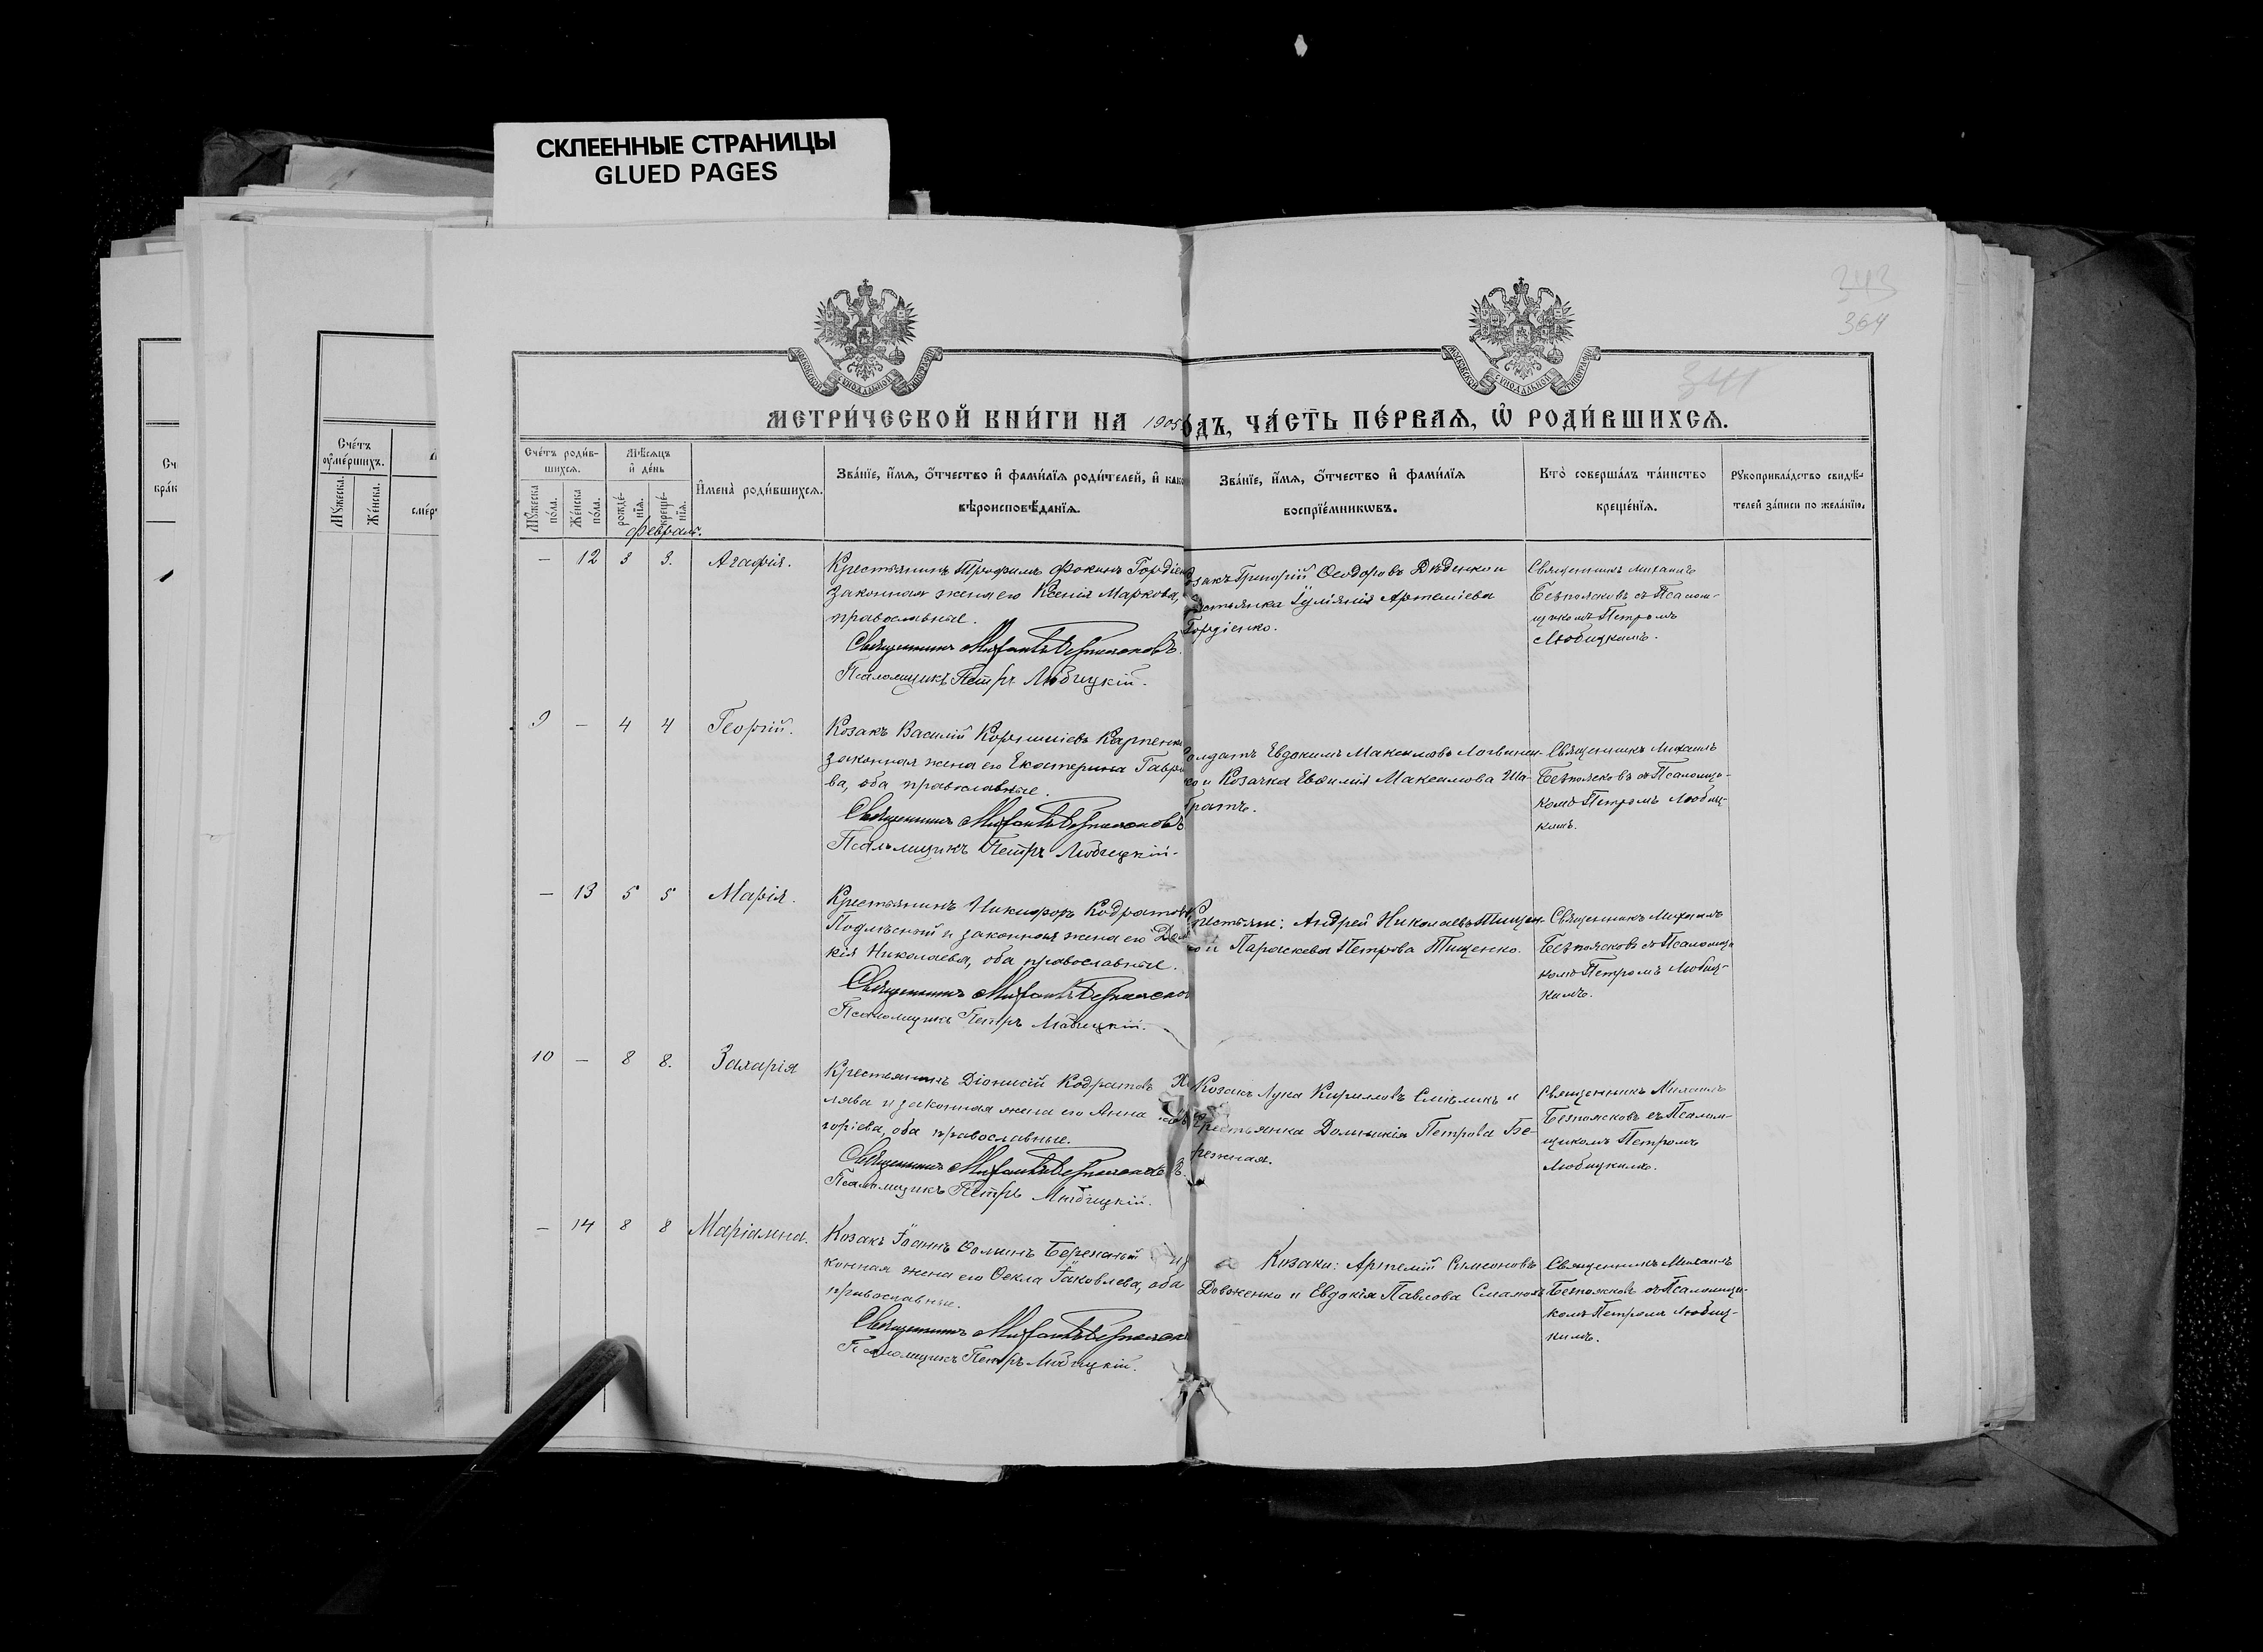 СКЛЕЕННЫЕ СТРАНИЦЫ
GLUED PAGES
343
364
341
МОСКОВСКОЙ СѴНОДАЛЬНОЙ ТИПОГРАФІИ
МОСКОВСКОЙ СѴНОДАЛЬНОЙ ТИПОГРАФІИ
МЕТРИ́ЧЕСКОЙ КНИ́ГИ НА 1905
ОДЪ, ЧА́СТЬ ПЕ́РВАЯ, Ѡ҆ РОДИ́ВШИХСЯ.
Сче́тъ
ᲂу҆ме́ршихъ.
Мꙋ́жеска.
Же́нска.
Сче́тъ роди́в-
шихся.
Мꙋ́жеска
по́ла.
Же́нска
по́ла.
Мѣ́сяцъ
и҆ де́нь
рожде́-
нїя.
креще́-
нїя.
И҆мена̀ роди́вшихся.
Зва́нїе, и҆́мя, ѻ҆́тчество и҆ фами́лїя роди́телей, и҆ како
вѣроисповѣ́данїя.
Зва́нїе, и҆́мя, ѻ҆́тчество и҆ фами́лїя
воспрїе́мникѡвъ.
Кто̀ соверша́лъ та́инство
креще́нїя.
Рꙋкоприкла́дство свидѣ́-
телей за́писи по жела́нїю.
Февраль.
— 12 3 3. Агафія.
Крестьянинъ Трофимъ Фокинъ Гордіен
законная жена его Ксенія Маркова,
православные.
Священникъ Михаилъ Безпоясковъ.
Псаломщикъ Петръ Любицкій.
закъ Григорій Ѳеодоровъ Дѣденко и
стьянка Іуліанія Артеміева
Гордіенко.
Священникъ Михаилъ
Безпоясковъ съ Псалом-
щикомъ Петромъ
Любицкимъ.
9 — 4 4 Георгій.
Козакъ Василій Корниліевъ Карпенко
законная жена его Екатерина Гаври
ва, оба православные.
Священникъ Михаилъ Безпоясковъ
Псаломщикъ Петръ Любицкій.
олдатъ Евдокимъ Максимовъ Логвинен-
ко и Козачка Евфимія Максимова Ша-
братъ.
Священникъ Михаилъ
Безпоясковъ съ Псаломщи-
комъ Петромъ Любиц-
кимъ.
— 13 5 5 Марія.
Крестьянинъ Никифоръ Кодратовъ
Подлѣсный и законная жена его
кія Николаева, оба православные.
Священникъ Михаилъ Безпясков
Псаломщикъ Петръ Любицкій.
Крестьяне: Андрей Николаевъ Тищен-
ко и Параскева Петрова Тищенко.
Священникъ Михаилъ
Безпоясковъ съ Псаломщи
комъ Петромъ Любиц-
кимъ.
10 — 8 8. Захарія
Крестьянинъ Діонисій Кодратовъ
лява и законная жена его Анна
горіева, оба православные.
Священникъ Михаилъ Безпоясковъ.
Псаломщикъ Петръ Любицкій.
Козакъ Лука Кирилловъ Смѣликъ и
Крестьянка Домникія Петрова Бе-
режная.
Священникъ Михаилъ
Безпоясковъ съ Псалом-
щикомъ Петромъ
Любицкимъ.
— 14 8 8 Маріамна.
Козакъ Іоаннъ Ѳоминъ Бережный
конная жена его Ѳекла Іаковлева, оба
православные.
Священникъ Михаилъ Безпояско
Псаломщикъ Петръ Любицкій.
Козаки: Артемій Симеоновъ
Довженко и Евдокія Павлова
Священникъ Михаилъ
Безпоясковъ съ Псаломщи-
комъ Петромъ Любиц-
кимъ.